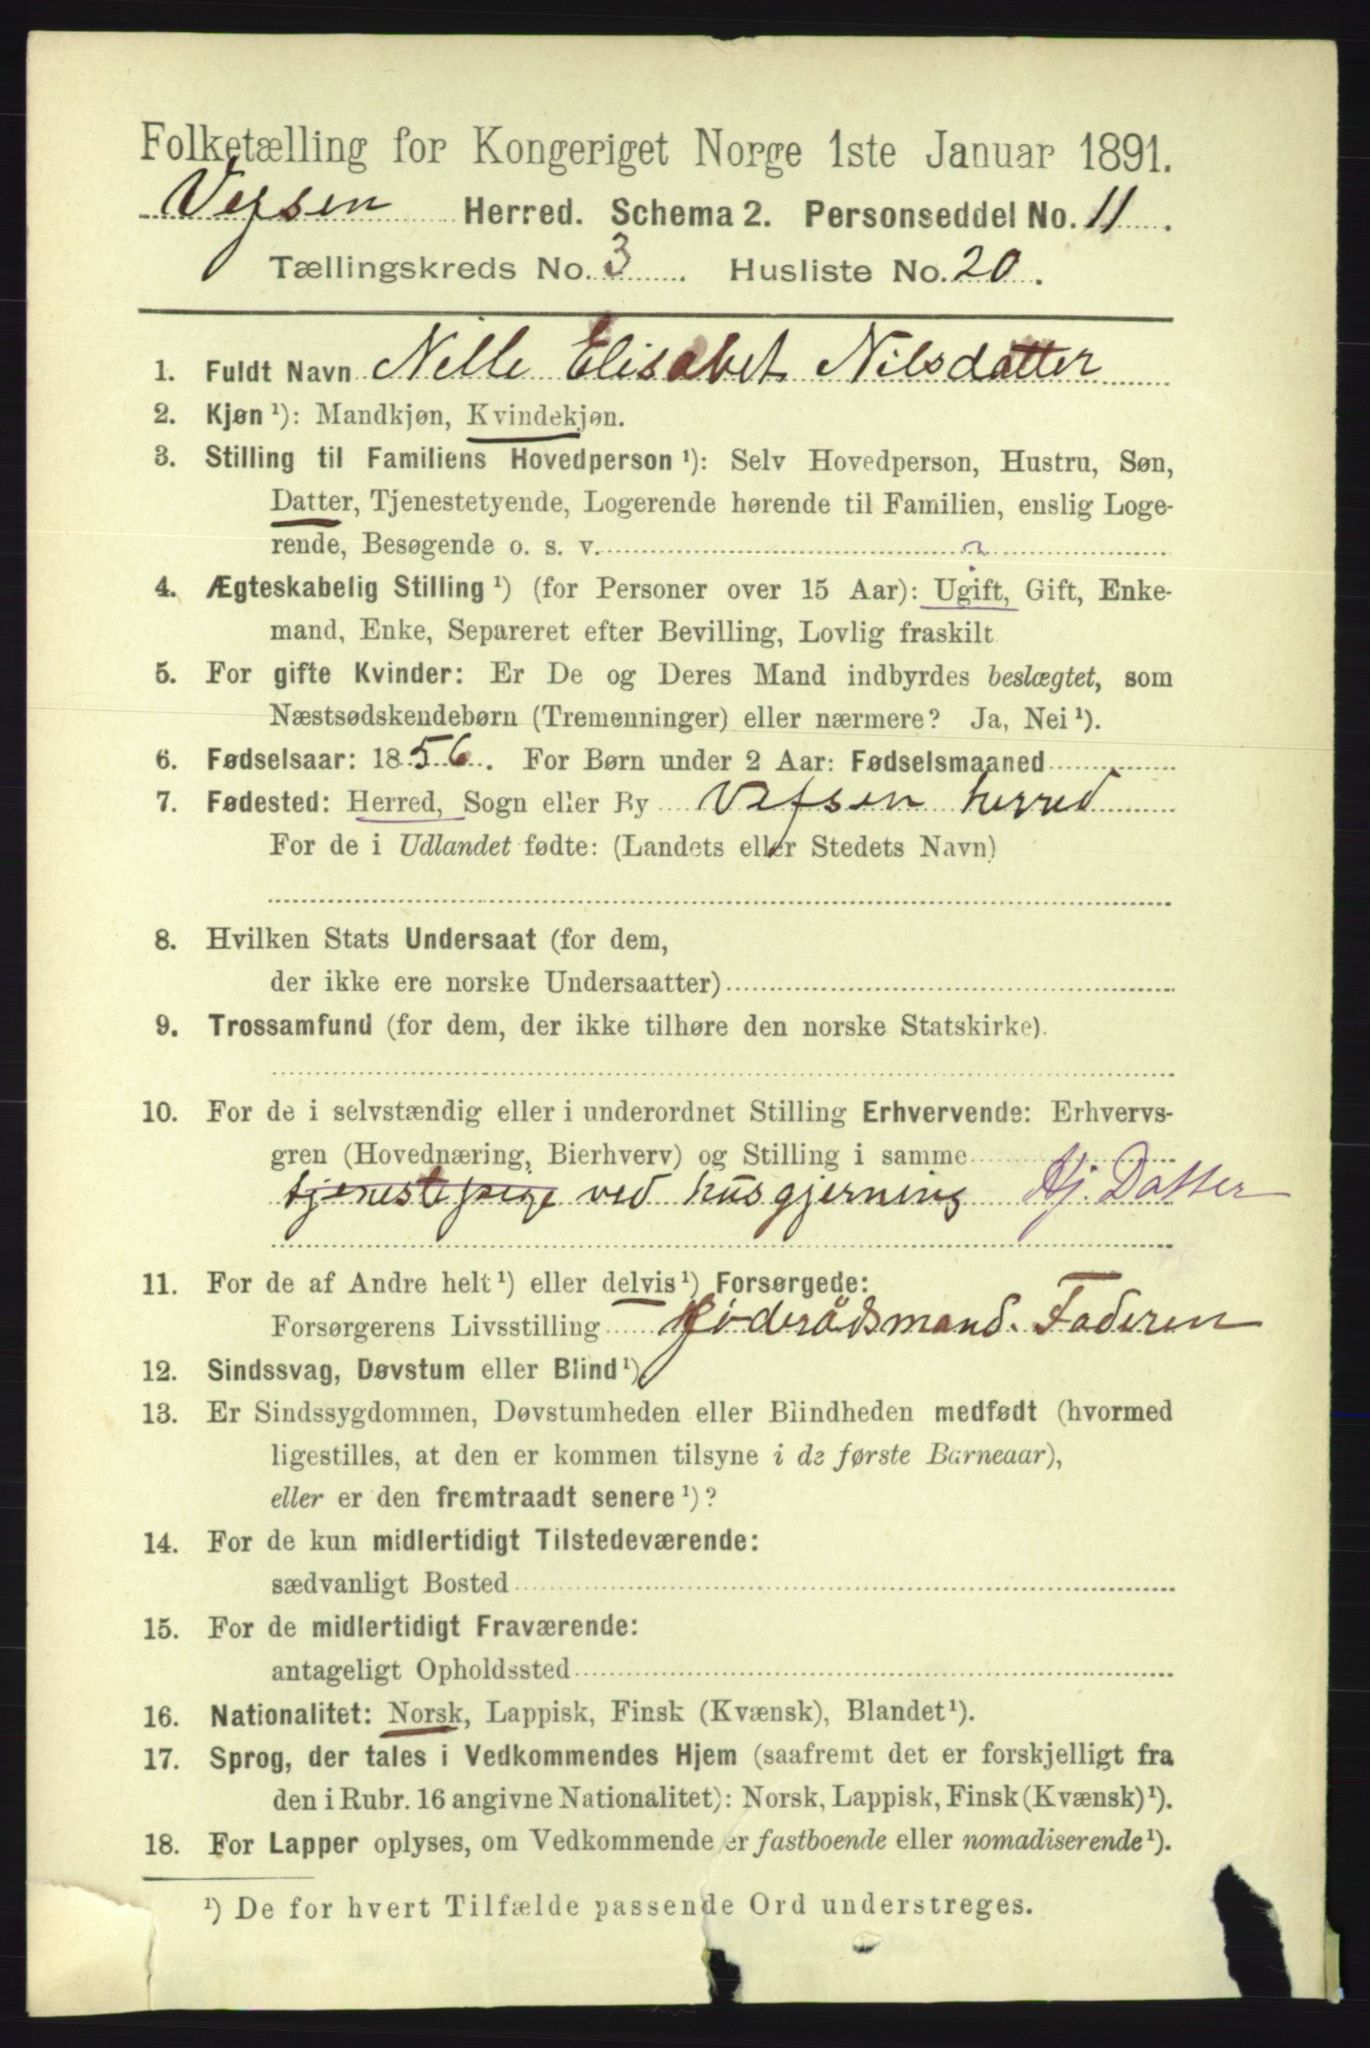 Folketælling for Kongeriget Norge 1ste Januar 1891.
Vefsen Herred. Schema 2. Personseddel No. 11.
Tællingskreds No. 3. Husliste No. 20.
1. Fuldt Navn Nille Elisabet Nilsdatter
2. Kjøn ¹): Mandkjøn, Kvindekjøn.
3. Stilling til Familiens Hovedperson ¹): Selv Hovedperson, Hustru, Søn,
Datter, Tjenestetyende, Logerende hørende til Familien, enslig Loge-
rende, Besøgende o. s. v.
4. Ægteskabelig Stilling ¹) (for Personer over 15 Aar): Ugift, Gift, Enke-
mand, Enke, Separeret efter Bevilling, Lovlig fraskilt
5. For gifte Kvinder: Er De og Deres Mand indbyrdes beslægtet, som
Næstsødskendebørn (Tremenninger) eller nærmere? Ja, Nei ¹).
6. Fødselsaar: 1856. For Børn under 2 Aar: Fødselsmaaned
7. Fødested: Herred, Sogn eller By Vefsen herred
For de i Udlandet fødte: (Landets eller Stedets Navn)
8. Hvilken Stats Undersaat (for dem,
der ikke ere norske Undersaatter)
9. Trossamfund (for dem, der ikke tilhøre den norske Statskirke).
10. For de i selvstændig eller i underordnet Stilling Erhvervende: Erhvervs-
gren (Hovednæring, Bierhverv) og Stilling i samme
tjenestepige ved husgjerning Hj. Datter
11. For de af Andre helt ¹) eller delvis ¹) Forsørgede:
Forsørgerens Livsstilling Føderådsmand. Faderen
12. Sindssvag, Døvstum eller Blind ¹)
13. Er Sindssygdommen, Døvstumheden eller Blindheden medfødt (hvormed
ligestilles, at den er kommen tilsyne i de første Barneaar),
eller er den fremtraadt senere ¹)?
14. For de kun midlertidigt Tilstedeværende:
sædvanligt Bosted
15. For de midlertidigt Fraværende:
antageligt Opholdssted
16. Nationalitet: Norsk, Lappisk, Finsk (Kvænsk), Blandet ¹).
17. Sprog, der tales i Vedkommendes Hjem (saafremt det er forskjelligt fra
den i Rubr. 16 angivne Nationalitet): Norsk, Lappisk, Finsk (Kvænsk) ¹).
18. For Lapper oplyses, om Vedkommende er fastboende eller nomadiserende ¹).
¹) De for hvert Tilfælde passende Ord understreges.